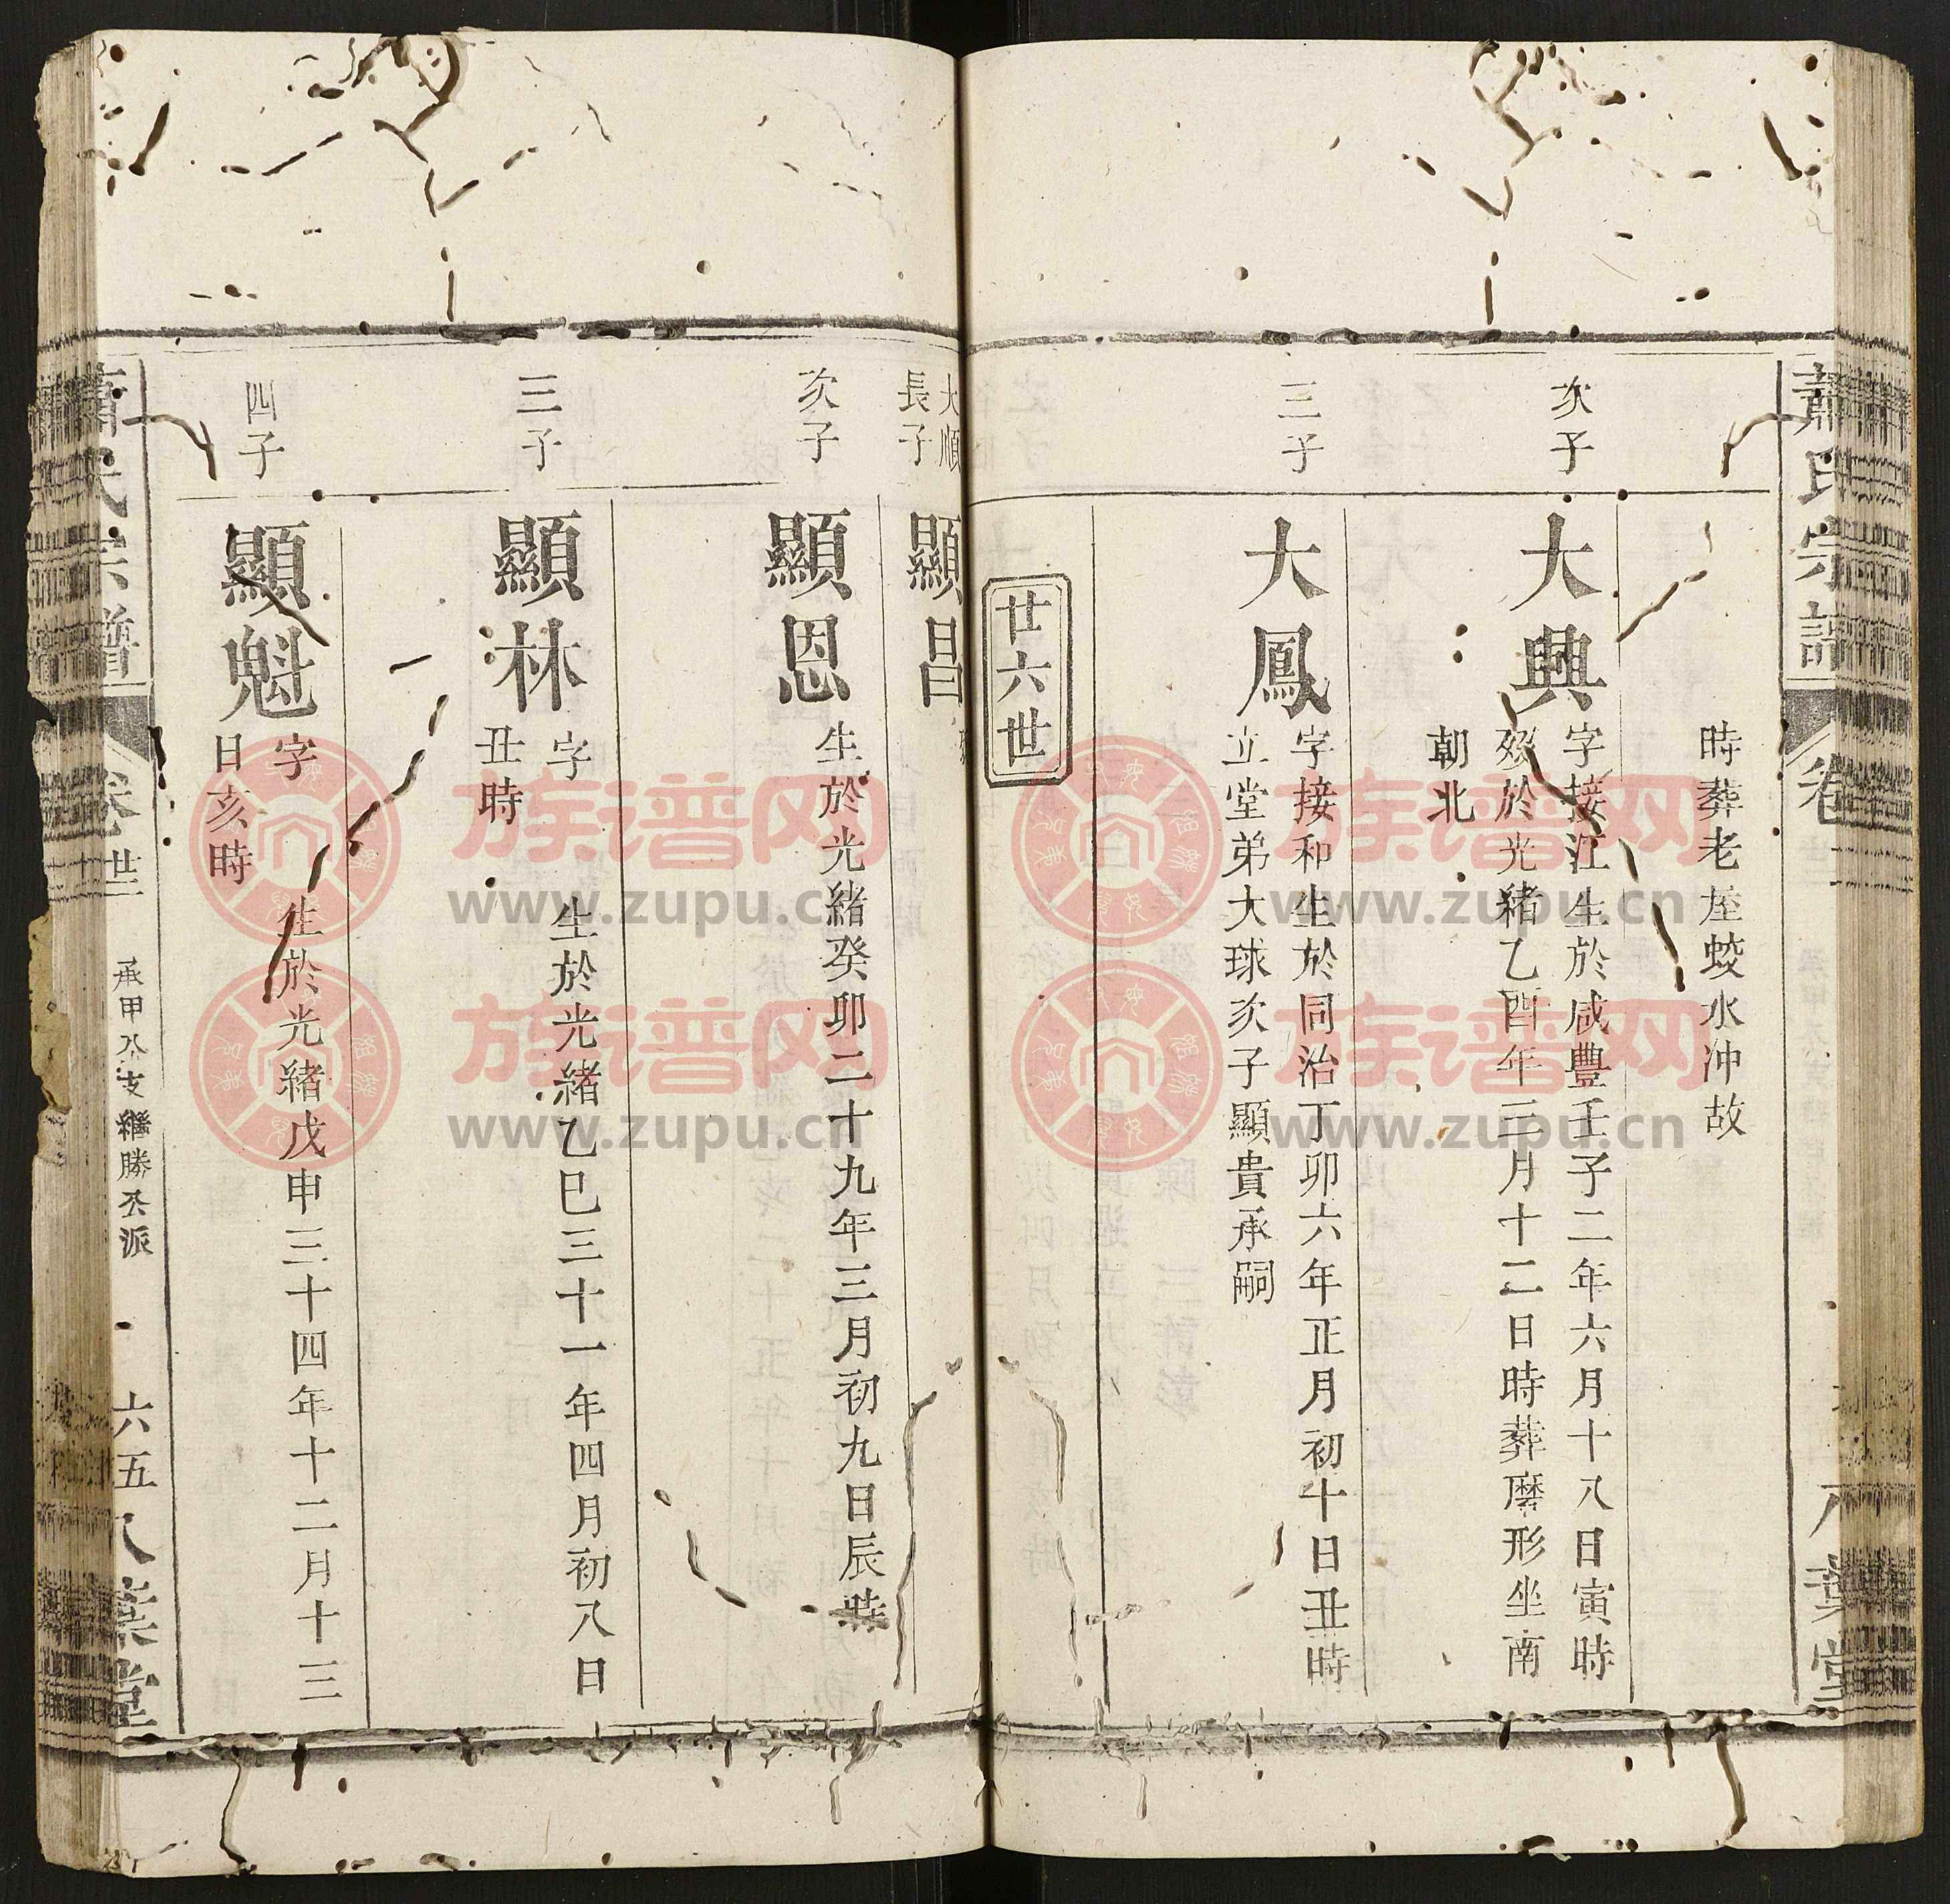 蕭氏宗譜
卷
八葉堂
時葬老垤蛟水沖故
次子
大興
字接江生於咸豐壬子二年六月十八日寅時
歿於光緒乙酉年三月十二日時葬磨形坐南
朝北
三子
大鳳
字接和生於同治丁卯六年正月初十日丑時
立堂弟大球次子顯貴承嗣
廿六世
大順
長子
顯昌
次子
顯恩
生於光緒癸卯二十九年三月初九日辰時
三子
顯淋
字 生於光緒乙巳三十一年四月初八日
丑時
四子
顯魁
字 生於光緒戊申三十四年十二月十三
日亥時
蕭氏宗譜
卷廿三
承甲公支繼勝公派
六五
八葉堂
族谱网
www.zupu.cn
族谱网
www.zupu.cn
族谱网
www.zupu.cn
族谱网
www.zupu.cn